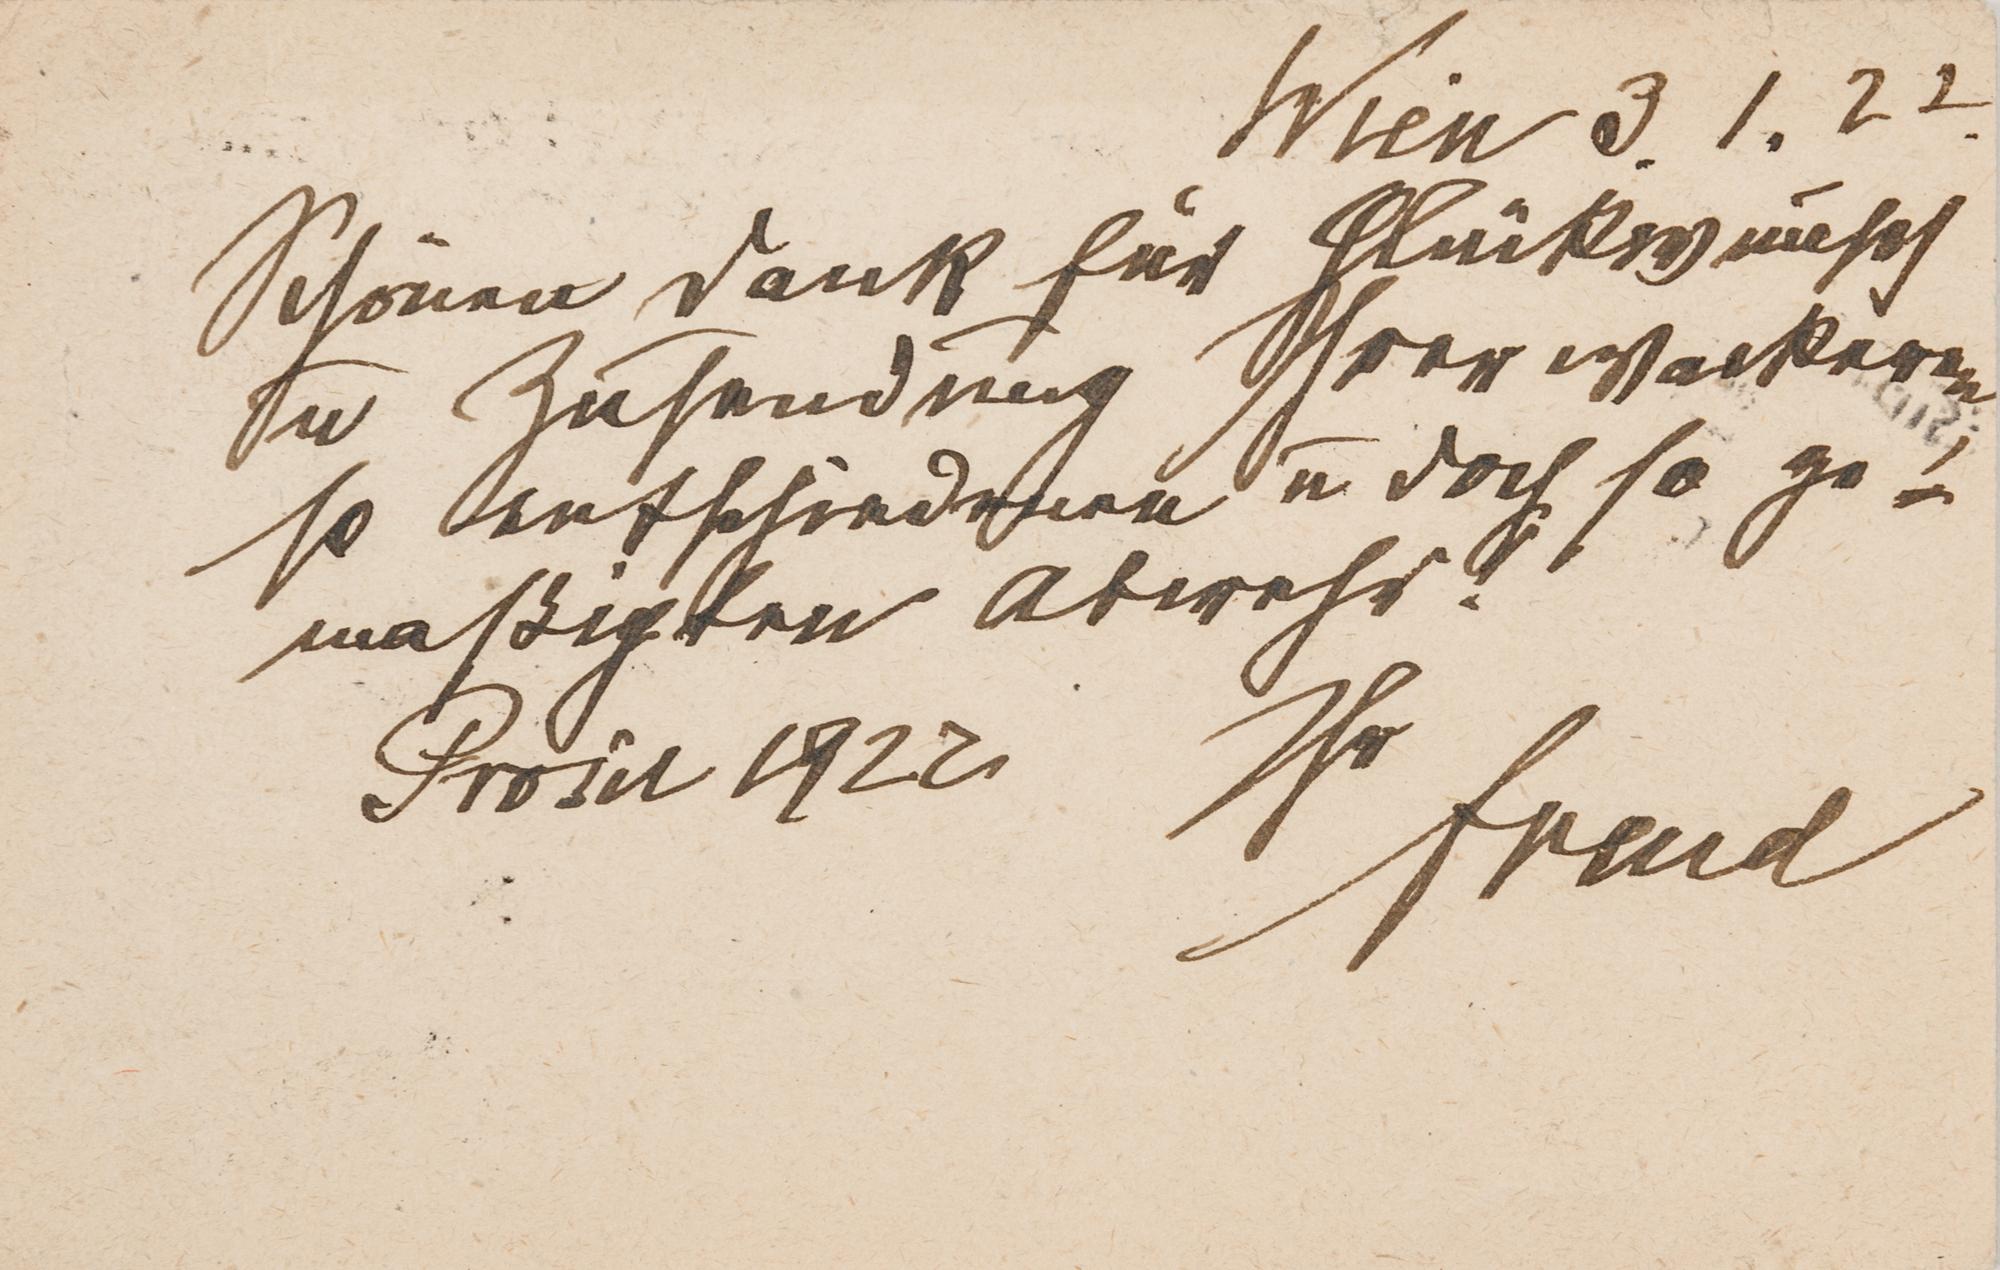 Wien 3. 1. 22.
Schönen Dank für Glückwunsch
u Zusendung Ihrer wackeren
so entschiedenen u doch so ge-
maßigten Abwehr!
Prosit 1922
Ihr
Freud